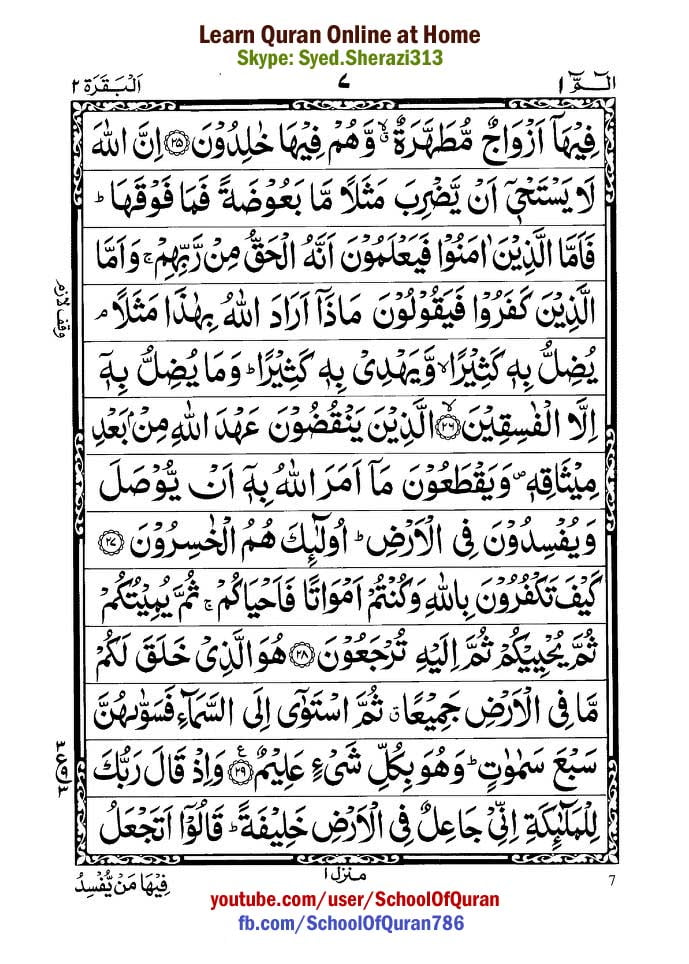 Learn Quran Online at Home
Skype: Syed.Sherazi313
الٓمّٓ ١ ٧ اَلْبَقَرَة ٢
فِيْهَاۤ اَزْوَاجٌ مُّطَهَّرَةٌ ۙ وَّهُمْ فِيْهَا خٰلِدُوْنَ ﴿۲۵﴾ اِنَّ اللّٰهَ
لَا يَسْتَحْيٖۤ اَنْ يَّضْرِبَ مَثَلًا مَّا بَعُوْضَةً فَمَا فَوْقَهَا ؕ
فَاَمَّا الَّذِيْنَ اٰمَنُوْا فَيَعْلَمُوْنَ اَنَّهُ الْحَقُّ مِنْ رَّبِّهِمْ ۚ وَاَمَّا
الَّذِيْنَ كَفَرُوْا فَيَقُوْلُوْنَ مَاذَاۤ اَرَادَ اللّٰهُ بِهٰذَا مَثَلًا ۘ
وقف لازم
يُضِلُّ بِهٖ كَثِيْرًا ۙ وَّيَهْدِيْ بِهٖ كَثِيْرًا ؕ وَمَا يُضِلُّ بِهٖۤ
اِلَّا الْفٰسِقِيْنَ ﴿۲۶﴾ ۙ الَّذِيْنَ يَنْقُضُوْنَ عَهْدَ اللّٰهِ مِنْۢ بَعْدِ
مِيْثَاقِهٖ ۪ وَيَقْطَعُوْنَ مَاۤ اَمَرَ اللّٰهُ بِهٖۤ اَنْ يُّوْصَلَ
وَيُفْسِدُوْنَ فِي الْاَرْضِ ؕ اُولٰٓئِكَ هُمُ الْخٰسِرُوْنَ ﴿۲۷﴾
كَيْفَ تَكْفُرُوْنَ بِاللّٰهِ وَكُنْتُمْ اَمْوَاتًا فَاَحْيَاكُمْ ۚ ثُمَّ يُمِيْتُكُمْ
ثُمَّ يُحْيِيْكُمْ ثُمَّ اِلَيْهِ تُرْجَعُوْنَ ﴿۲۸﴾ هُوَ الَّذِيْ خَلَقَ لَكُمْ
مَّا فِي الْاَرْضِ جَمِيْعًا ۗ ثُمَّ اسْتَوٰۤى اِلَى السَّمَآءِ فَسَوّٰىهُنَّ
سَبْعَ سَمٰوٰتٍ ؕ وَهُوَ بِكُلِّ شَيْءٍ عَلِيْمٌ ﴿۲۹﴾ وَاِذْ قَالَ رَبُّكَ
لِلْمَلٰٓئِكَةِ اِنِّيْ جَاعِلٌ فِي الْاَرْضِ خَلِيْفَةً ؕ قَالُوْۤا اَتَجْعَلُ
7
منزل ١
فِيْهَا مَنْ يُّفْسِدُ
youtube.com/user/SchoolOfQuran
fb.com/SchoolOfQuran786